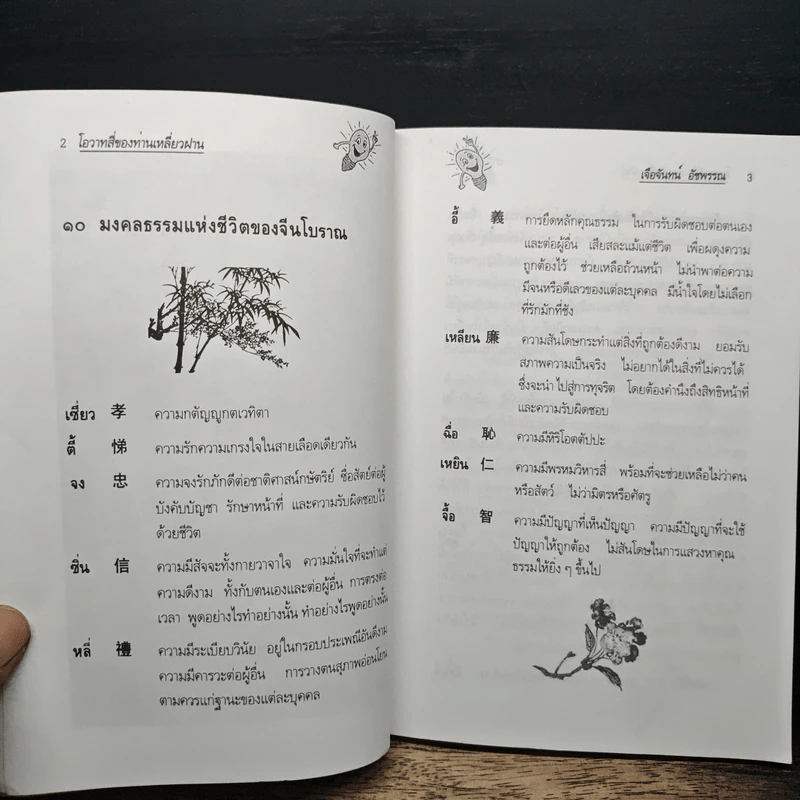 2 โอวาทสี่ของท่านเหลี่ยวฝาน
๑๐ มงคลธรรมแห่งชีวิตของจีนโบราณ
เซี่ยว 孝 ความกตัญญูกตเวทิตา
ตี้ 悌 ความรักความเกรงใจในสายเลือดเดียวกัน
จง 忠 ความจงรักภักดีต่อชาติศาสน์กษัตริย์ ซื่อสัตย์ต่อผู้
บังคับบัญชา รักษาหน้าที่ และความรับผิดชอบไว้
ด้วยชีวิต
ซิ่น 信 ความมีสัจจะทั้งกายวาจาใจ ความมั่นใจที่จะทำแต่
ความดีงาม ทั้งกับตนเองและต่อผู้อื่น การตรงต่อ
เวลา พูดอย่างไรทำอย่างนั้น ทำอย่างไรพูดอย่างนั้น
หลี่ 禮 ความมีระเบียบวินัย อยู่ในกรอบประเพณีอันดีงาม
ความมีคารวะต่อผู้อื่น การวางตนสุภาพอ่อนโยน
ตามควรแก่ฐานะของแต่ละบุคคล
เจือจันทน์ อัชพรรณ 3
อี้ 義 การยึดหลักคุณธรรม ในการรับผิดชอบต่อตนเอง
และต่อผู้อื่น เสียสละแม้แต่ชีวิต เพื่อผดุงความ
ถูกต้องไว้ ช่วยเหลือถ้วนหน้า ไม่นำพาต่อความ
มีจนหรือดีเลวของแต่ละบุคคล มีน้ำใจโดยไม่เลือก
ที่รักมักที่ชัง
เหลียน 廉 ความสันโดษกระทำแต่สิ่งที่ถูกต้องดีงาม ยอมรับ
สภาพความเป็นจริง ไม่อยากได้ในสิ่งที่ไม่ควรได้
ซึ่งจะนำไปสู่การทุจริต โดยต้องคำนึงถึงสิทธิหน้าที่
และความรับผิดชอบ
ฉื่อ 恥 ความมีหิริโอตตัปปะ
เหยิน 仁 ความมีพรหมวิหารสี่ พร้อมที่จะช่วยเหลือไม่ว่าคน
หรือสัตว์ ไม่ว่ามิตรหรือศัตรู
จื้อ 智 ความมีปัญญาที่เห็นปัญญา ความมีปัญญาที่จะใช้
ปัญญาให้ถูกต้อง ไม่สันโดษในการแสวงหาคุณ
ธรรมให้ยิ่ง ๆ ขึ้นไป